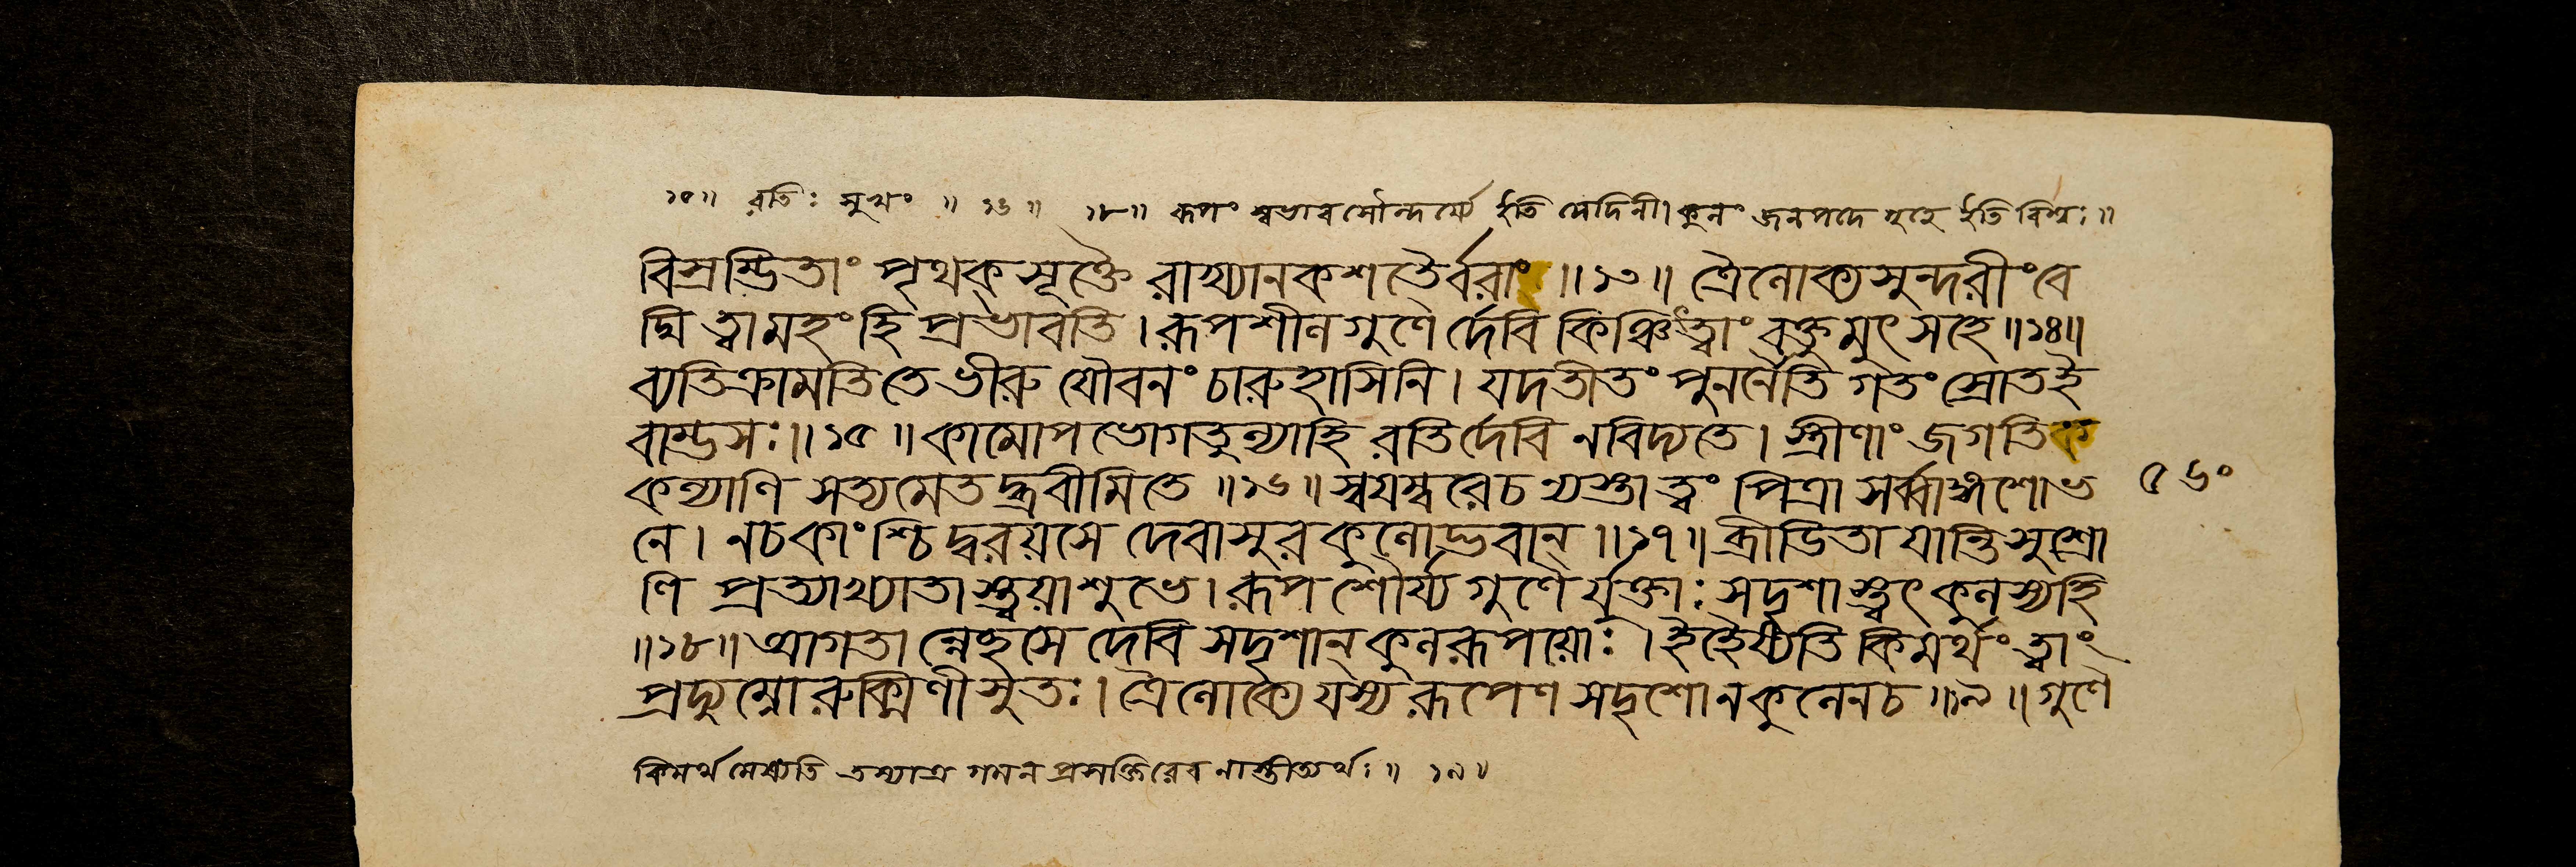 ১৫॥ রতিঃ সুখং ॥ ১৬॥ ১৮॥ রূপং স্বভাবসৌন্দর্য্যে ইতি মেদিনী। কুলং জনপদে গৃহে ইতি বিশ্বঃ॥
বিস্রম্ভিতাং পৃথক্সূক্তৈ রাখ্যানকশতৈর্বরাং ॥১৩॥ ত্রৈলোক্যসুন্দরীং বে
দ্মি ত্বামহংহি প্রভাবতি। রূপশীলগুণৈর্দেবি কিঞ্চিত্ত্বাং বক্তুমুৎসহে॥১৪॥
ব্যতিক্রামতিতে ভীরু যৌবনং চারুহাসিনি। যদতীতং পুনর্নৈতি গতং স্রোতই
বাম্ভসঃ॥১৫॥ কামোপভোগতুল্যাহি রতির্দেবি নবিদ্যতে। স্ত্রীণাং জগতিক
কল্যাণি সত্যমেতদ্ব্রবীমিতে ॥১৬॥ স্বয়ম্বরেচ ন্যস্তা ত্বং পিত্রা সর্ব্বাঙ্গশোভ
নে। নচকাংশ্চিদ্বরয়সে দেবাসুরকুলোদ্ভবান্ ॥১৭॥ ব্রীডিতা যান্তি সুশ্রো
ণি প্রত্যাখ্যাতাস্ত্বয়াশুভে। রূপশৌর্য্যগুণৈর্যুক্তাঃ সদৃশাস্ত্বৎ কুলস্যহি
॥১৮॥ আগতান্নেচ্ছসে দেবি সদৃশান্ কুলরূপয়োঃ। ইহৈষ্যতি কিমর্থং ত্বাং
প্রদ্যুম্নো রুক্মিণীসুতঃ। ত্রৈলোক্যে যস্য রূপেণ সদৃশোনকুলেনচ॥১৯॥ গুণৈ
কিমর্থমেষ্যতি তস্যাত্র গমন প্রসক্তিরেব নাস্তীত্যর্থঃ॥ ১৯॥
৫৬০